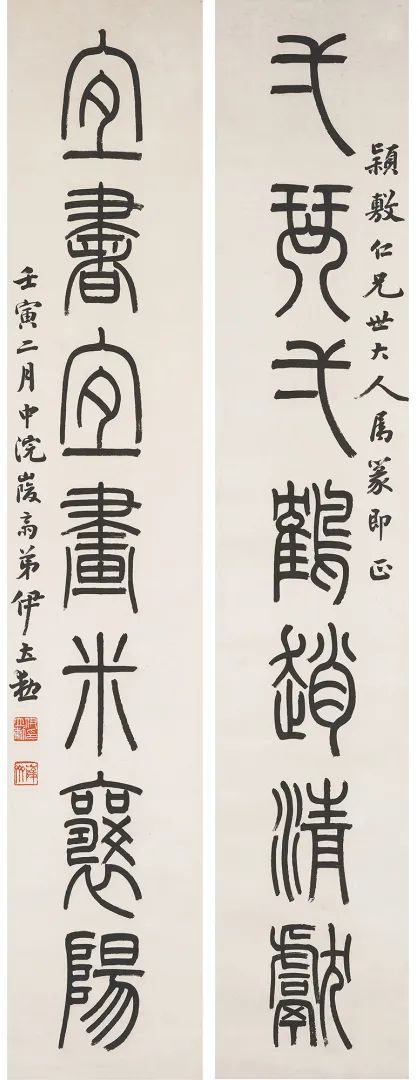 穎敷仁兄世大人属篆即正
弌琴弌鶴趙清獻
宜書宜畫米襄陽
壬寅二月中浣峻斋弟伊立勳